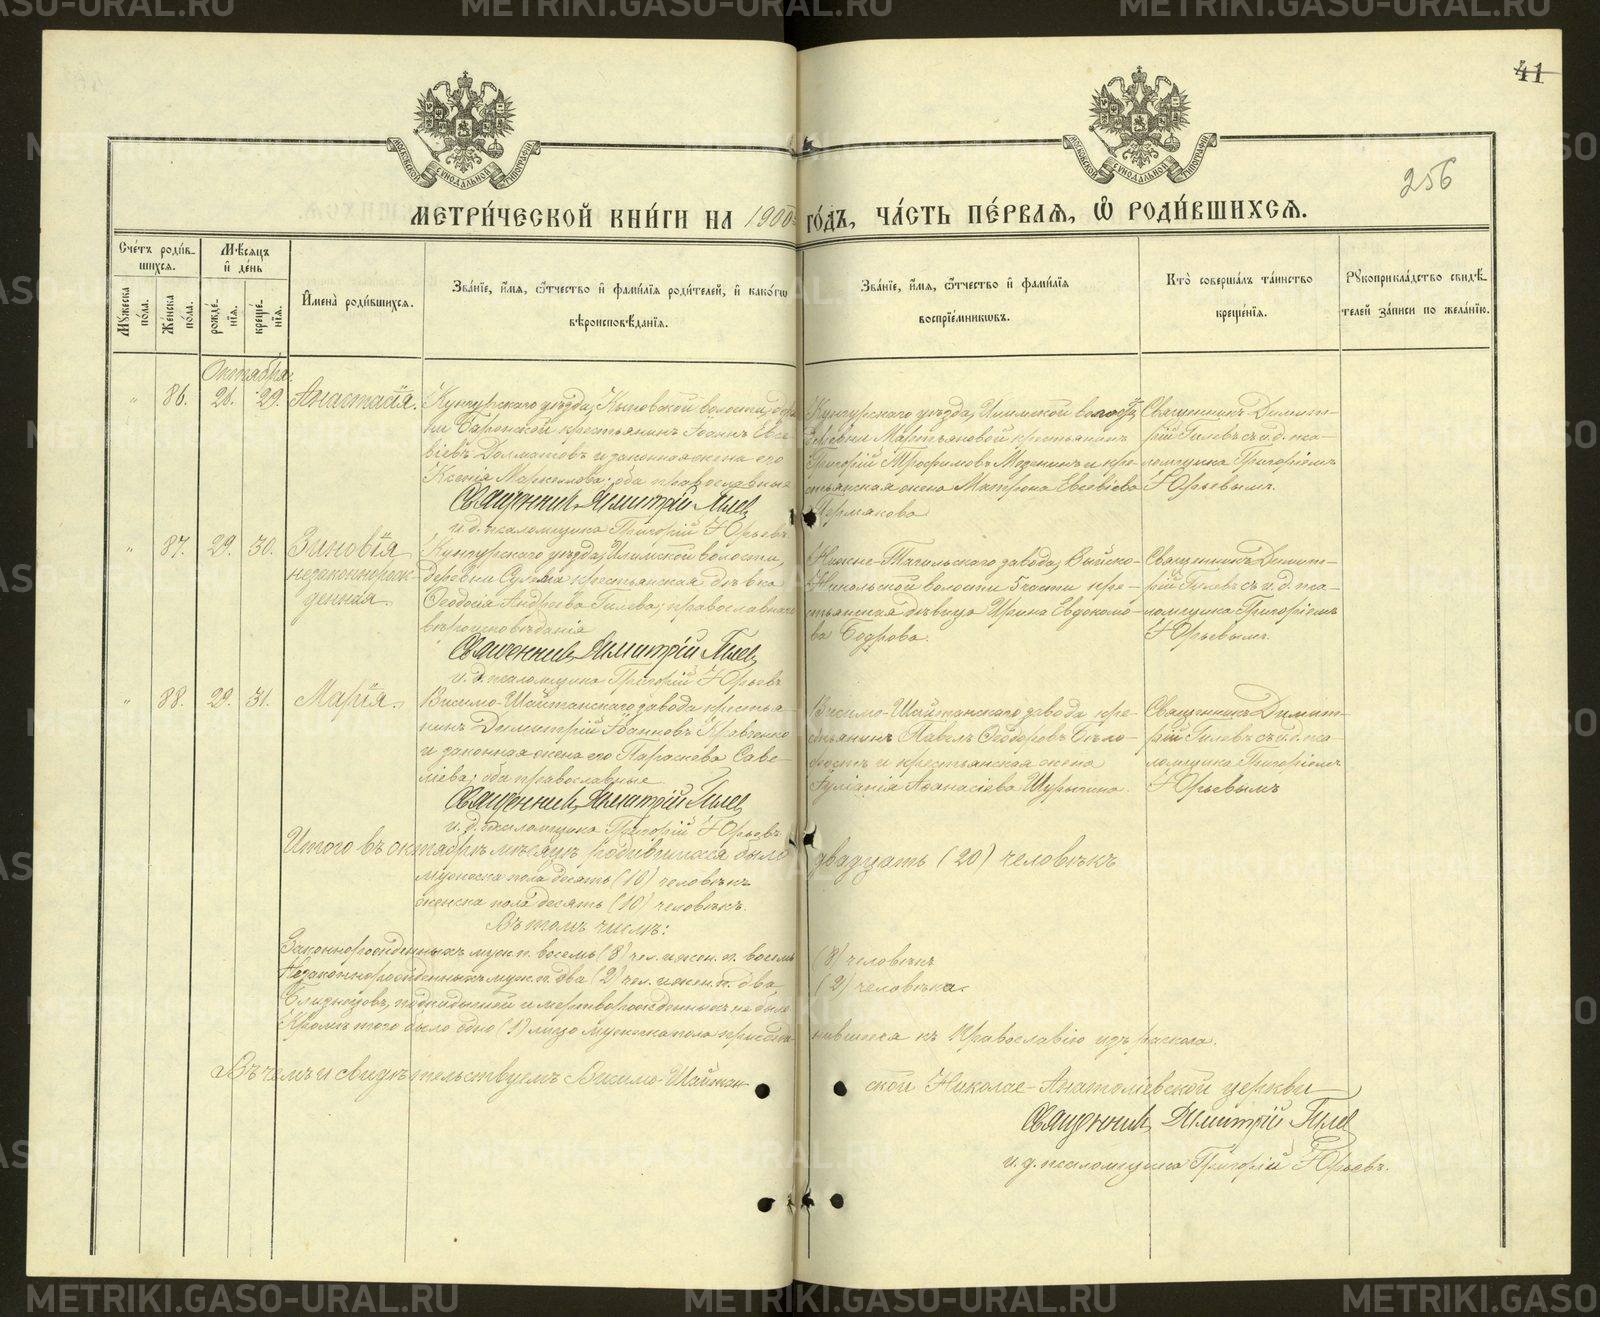 METRIKI.GASO-URAL.RU
41
256
МОСКОВСКОЙ СѴНОДАЛЬНОЙ ТИПОГРАФІИ
МОСКОВСКОЙ СѴНОДАЛЬНОЙ ТИПОГРАФІИ
МЕТРИ́ЧЕСКОЙ КНИ́ГИ НА 1900 ГО́ДЪ, ЧА́СТЬ ПЕ́РВАѦ, Ѡ҆ РОДИ́ВШИХСѦ.
Сче́тъ роди́в-
шихсѧ.
Мѣ́сѧцъ
и҆ де́нь
Мꙋ́жеска
по́ла.
Же́нска
по́ла.
рожде́-
нїѧ.
креще́-
нїѧ.
И҆мена̀ роди́вшихсѧ.
Зва́нїе, и҆́мѧ, ѻ҆́тчество и҆ фами́лїѧ роди́телей, и҆ како́гѡ
вѣроисповѣ́данїѧ.
Зва́нїе, и҆́мѧ, ѻ҆́тчество и҆ фами́лїѧ
воспрїе́мникѡвъ.
Кто̀ соверша́лъ та́инство
креще́нїѧ.
Рꙋкоприкла́дство свидѣ́-
телей за́писи по жела́нїю.
Октября.
„ 86. 26. 29. Анастасія.
Кунгурскаго уѣзда, Кыновской волости, дерев-
ни Баронской крестьянинъ Іоаннъ Евсе-
віевъ Долматовъ и законная жена его
Ксенія Маркеллова; оба православные
Священникъ Димитрій Гилев
и. д. псаломщика Григорій Юрьевъ
Кунгурскаго уѣзда, Илимской волости,
деревни Мартьяновой крестьянин
Григорій Трофимовъ Меданинъ и кре-
стьянская жена Матрона Евсевіева
Пермякова
Священникъ Димит-
рій Гилевъ съ и. д. пса-
ломщика Григоріемъ
Юрьевымъ.
„ 87. 29. 30. Зиновія
незаконнорож-
денная.
Кунгурскаго уѣзда, Илимской волости,
деревни Сулема крестьянская дѣвка
Ѳеодосія Андреева Гилева; православнаго
вѣроисповѣданія
Священникъ Димитрій Гилев
и. д. псаломщика Григорій Юрьевъ
Нижне-Тагильскаго завода, Выйско-
Никольской волости 5 части кре-
стьянская дѣвица Ирина Евдокимо-
ва Бодрова.
Священникъ Димит-
рій Гилевъ съ и. д. пса-
ломщика Григоріемъ
Юрьевымъ.
„ 88. 29. 31. Марія.
Висимо-Шайтанскаго завода крестья-
нинъ Димитрій Іоанновъ Кравченко
и законная жена его Параскева Саве-
ліева; оба православные
Священникъ Димитрій Гилев
и. д. псаломщика Григорій Юрьевъ
Висимо-Шайтанскаго завода кре-
стьянинъ Павелъ Ѳеодоровъ Бѣло-
хвостъ и крестьянская жена
Іуліанія Аѳанасіева Шурыгина.
Священникъ Димит-
рій Гилевъ съ и. д. пса-
ломщика Григоріемъ
Юрьевымъ
Итого въ октябрѣ мѣсяцѣ родившихся было двадцать (20) человѣкъ
мужеска пола десять (10) человѣкъ
женска пола десять (10) человѣкъ.
Въ томъ числѣ:
Законнорожденныхъ муж. п. восемь (8) чел. и жен. п. восемь (8) человѣкъ
Незаконнорожденныхъ муж. п. два (2) чел. и жен. п. два (2) человѣка.
Близнецовъ, подкидышей и мертворожденныхъ не было
Кромѣ того было одно (1) лицо мужеска пола присоединившееся къ Православію изъ раскола.
Въ чемъ и свидѣтельствуемъ Висимо-Шайтанской Николае-Анатоліевской церкви
Священникъ Димитрій Гилев
и. д. псаломщика Григорій Юрьевъ.